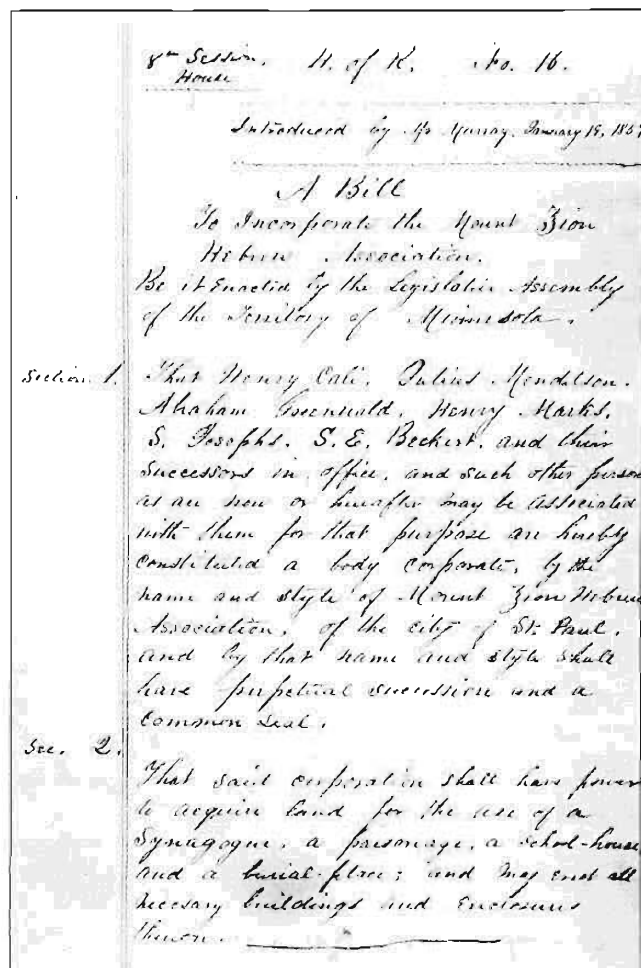 8th Session. H. of R. No. 16.
House
Introduced by Mr Murray. January 19, 185
A Bill
To Incorporate the Mount Zion
Hebrew Association.
Be it Enacted by the Legislative Assembly
of the Territory of Minnesota.
Section 1. That Henry Cali, Julius Mendelson.
Abraham Greenwald. Henry Marks.
S. Josephs. S. E. Beckert. and their
Successors in office, and such other person
as are now or hereafter may be associated
with them for that purpose are hereby
constituted a body corporate, by the
name and style of Mount Zion Hebrew
Association, of the city of St. Paul.
and by that name and style shall
have perpetual sucession and a
Common Seal.
Sec. 2.
That said corporation shall have power
to acquire land for the use of a
Synagogue, a parsonage, a School-house
and a burial-place; and may erect all
necesary buildings and Enclosures
thereon.